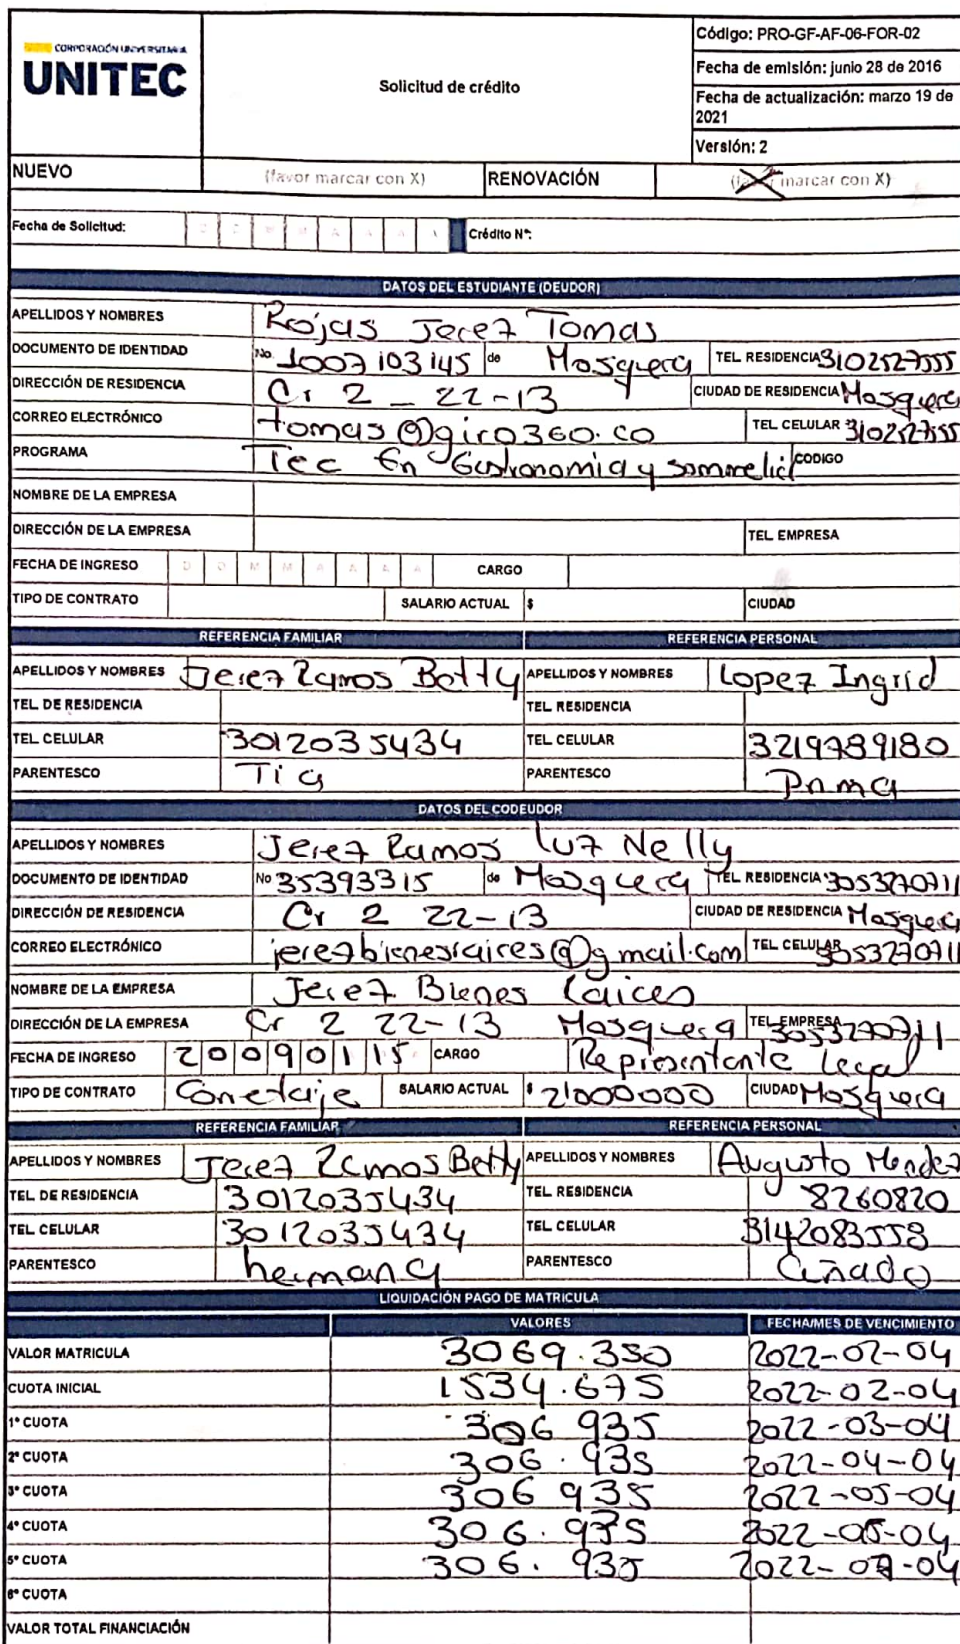 CORPORACIÓN UNIVERSITARIA
UNITEC
Solicitud de crédito
Código: PRO-GF-AF-06-FOR-02
Fecha de emisión: junio 28 de 2016
Fecha de actualización: marzo 19 de 2021
Versión: 2
NUEVO (favor marcar con X) RENOVACIÓN (favor marcar con X)
Fecha de Solicitud: D D M M A A A A Crédito N°:
DATOS DEL ESTUDIANTE (DEUDOR)
APELLIDOS Y NOMBRES Rojas Jerez Tomas
DOCUMENTO DE IDENTIDAD No. 1007103145 de Mosquera TEL RESIDENCIA 3102527555
DIRECCIÓN DE RESIDENCIA Cr 2 - 22-13 CIUDAD DE RESIDENCIA Mosquera
CORREO ELECTRÓNICO tomas@giro360.co TEL CELULAR 3102527555
PROGRAMA Tec En Gastronomia y sommelier CODIGO
NOMBRE DE LA EMPRESA
DIRECCIÓN DE LA EMPRESA TEL EMPRESA
FECHA DE INGRESO D D M M A A A A CARGO
TIPO DE CONTRATO SALARIO ACTUAL $ CIUDAD
REFERENCIA FAMILIAR REFERENCIA PERSONAL
APELLIDOS Y NOMBRES Jerez Ramos Betty APELLIDOS Y NOMBRES Lopez Ingrid
TEL DE RESIDENCIA TEL RESIDENCIA
TEL CELULAR 3012035434 TEL CELULAR 3219789180
PARENTESCO Tia PARENTESCO Prima
DATOS DEL CODEUDOR
APELLIDOS Y NOMBRES Jerez Ramos Luz Nelly
DOCUMENTO DE IDENTIDAD No 35393315 de Mosquera TEL RESIDENCIA 3053270711
DIRECCIÓN DE RESIDENCIA Cr 2 22-13 CIUDAD DE RESIDENCIA Mosquera
CORREO ELECTRÓNICO jerezbienesraices@gmail.com TEL CELULAR 3053270711
NOMBRE DE LA EMPRESA Jerez Bienes raices
DIRECCIÓN DE LA EMPRESA Cr 2 22-13 Mosquera TEL EMPRESA 3053270711
FECHA DE INGRESO 20090115 CARGO Representante Legal
TIPO DE CONTRATO Corretaje SALARIO ACTUAL $ 2'000000 CIUDAD Mosquera
REFERENCIA FAMILIAR REFERENCIA PERSONAL
APELLIDOS Y NOMBRES Jerez Ramos Betty APELLIDOS Y NOMBRES Augusto Mendez
TEL DE RESIDENCIA 3012035434 TEL RESIDENCIA 8260820
TEL CELULAR 3012035434 TEL CELULAR 3142083558
PARENTESCO hermana PARENTESCO Cuñado
LIQUIDACIÓN PAGO DE MATRICULA
VALORES FECHA/MES DE VENCIMIENTO
VALOR MATRICULA 3069.350 2022-02-04
CUOTA INICIAL 1534.675 2022-02-04
1ª CUOTA 306 935 2022-03-04
2ª CUOTA 306.935 2022-04-04
3ª CUOTA 306 935 2022-05-04
4ª CUOTA 306.935
5ª CUOTA 306.935 2022-07-04
6ª CUOTA
VALOR TOTAL FINANCIACIÓN